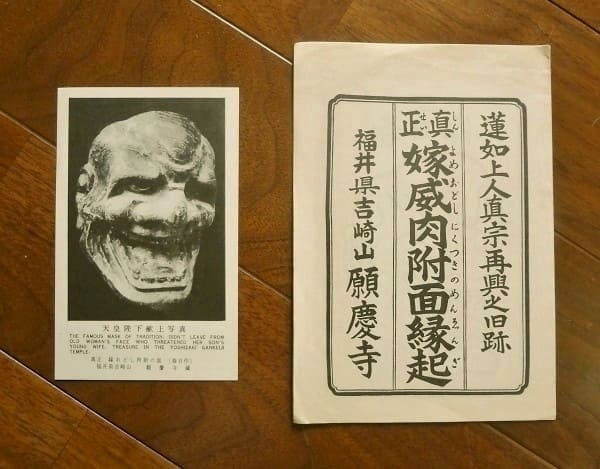 天皇陛下献上写真
THE FAMOUS MASK OF TRADITION: DIDN'T LEAVE FROM
OLD WOMAN'S FACE WHO THREATENED HER SON'S
YOUNG WIFE. TREASURE IN THE YOSHIZAKI GANKEIJI
TEMPLE:
真正 嫁おどし肉附の面
福井県吉崎山 願慶寺蔵
蓮如上人真宗再興之旧跡
真正 嫁威肉附面縁起
しん せい よめおどし にくつきのめんゑんぎ
福井県吉崎山 願慶寺